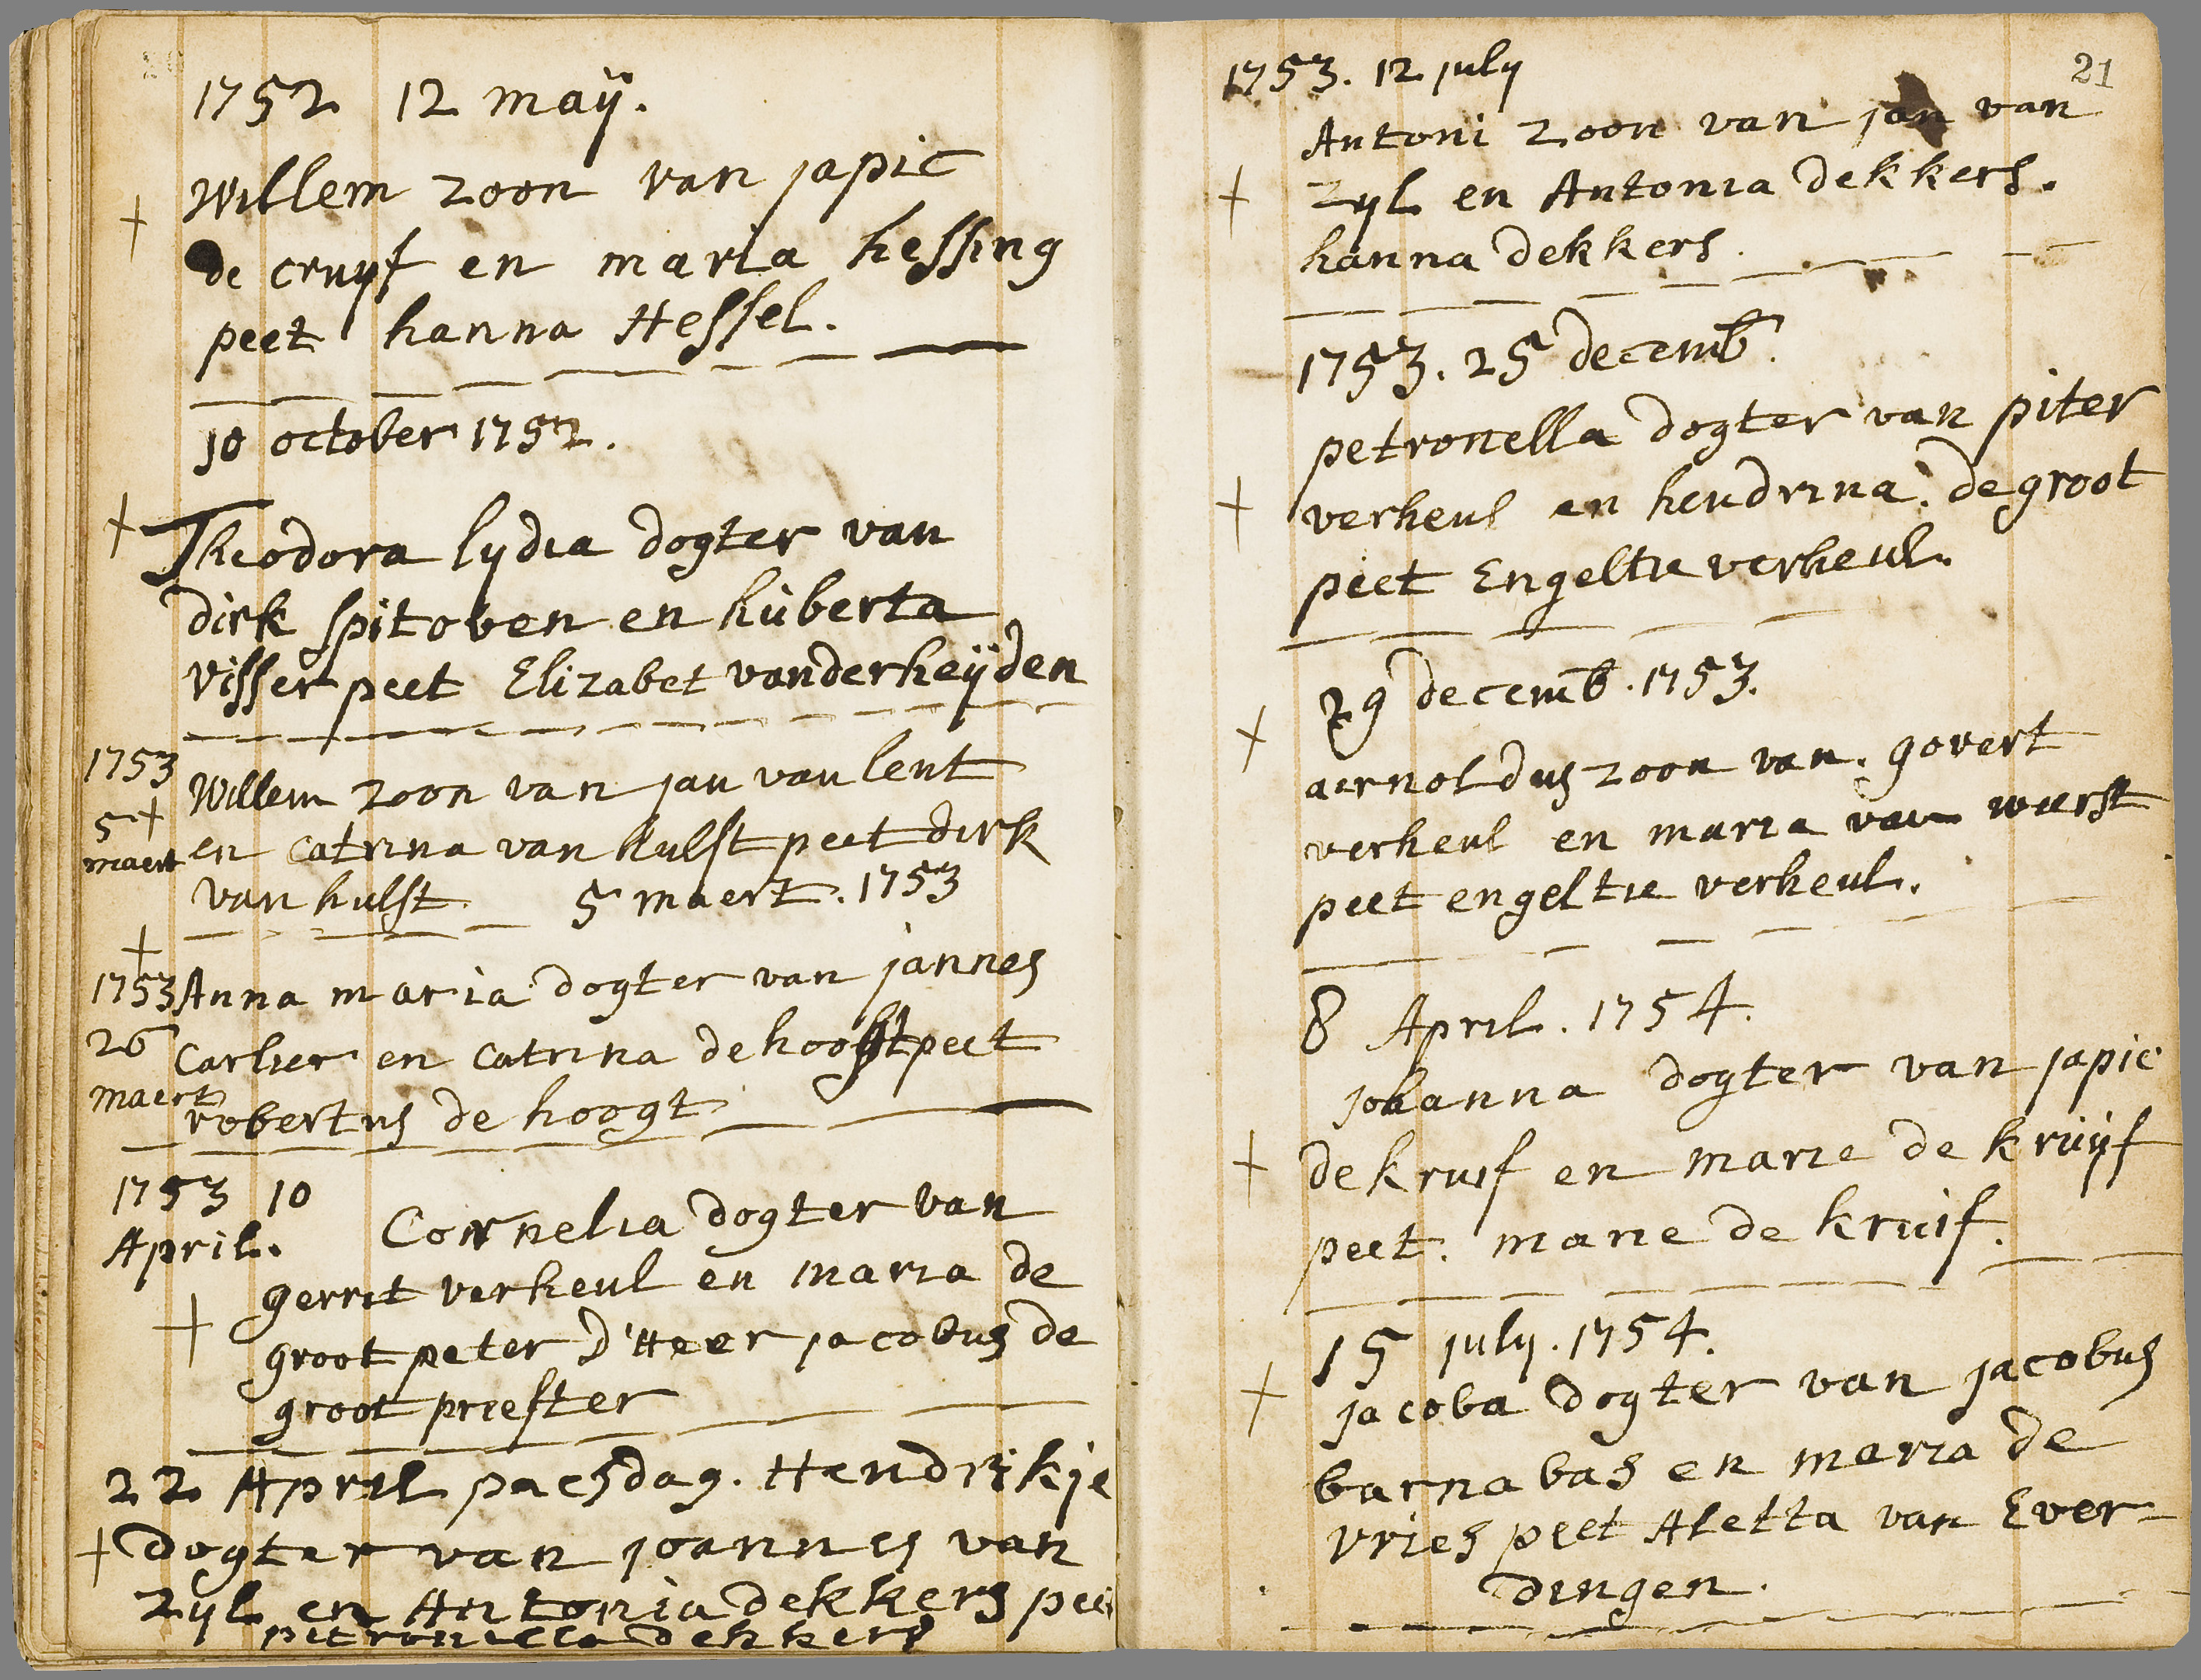 1752 12 maÿ.
Willem zoon van japic
+
de cruyf en maria hessing
peet hanna Hessel.
10 october 1752.
+
Theodora lydia dogter van
dirk spitoven en huberta
visser peet Elizabet vanderheÿden
1753
Willem zoon van jan van lent
5 +
maert
en catrina van hulst peet dirk
van hulst 5 maert. 1753
+
1753
Anna maria dogter van jannes
26
Carlier en catrina de hoogt peet
maert
robertus de hoogt
1753 10
April.
Cornelia dogter van
gerrit verheul en maria de
+
groot peter d'Heer jacobus de
groot priester
22 April paesdag. Hendrikje
+ dogter van joannes van
zyl en Antonia dekkers peet
petronella dekkers
21
1753. 12 july
Antoni zoon van jan van
+
zyl en Antonia dekkers.
hanna dekkers.
1753. 25 decemb.
petronella dogter van piter
+
verheul en hendrina. de groot
peet Engeltie verheul.
29 decemb. 1753.
+
aernoldus zoon van. govert
verheul en maria van weerst
peet engeltie verheul.
8 April. 1754.
johanna dogter van japic
+
de kruif en marie de krüÿf
peet. marie de kruif.
15 july. 1754.
+
jacoba dogter van jacobus
barnabas en maria de
vries peet Aletta van Ever-
dingen.